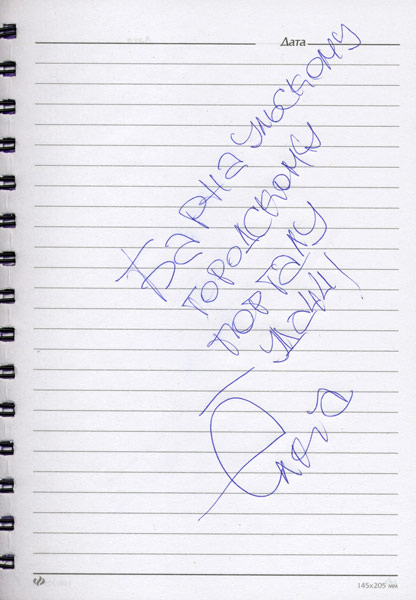 Дата
Барнаульскому
городскому
порталу
удачи!
145x205 мм